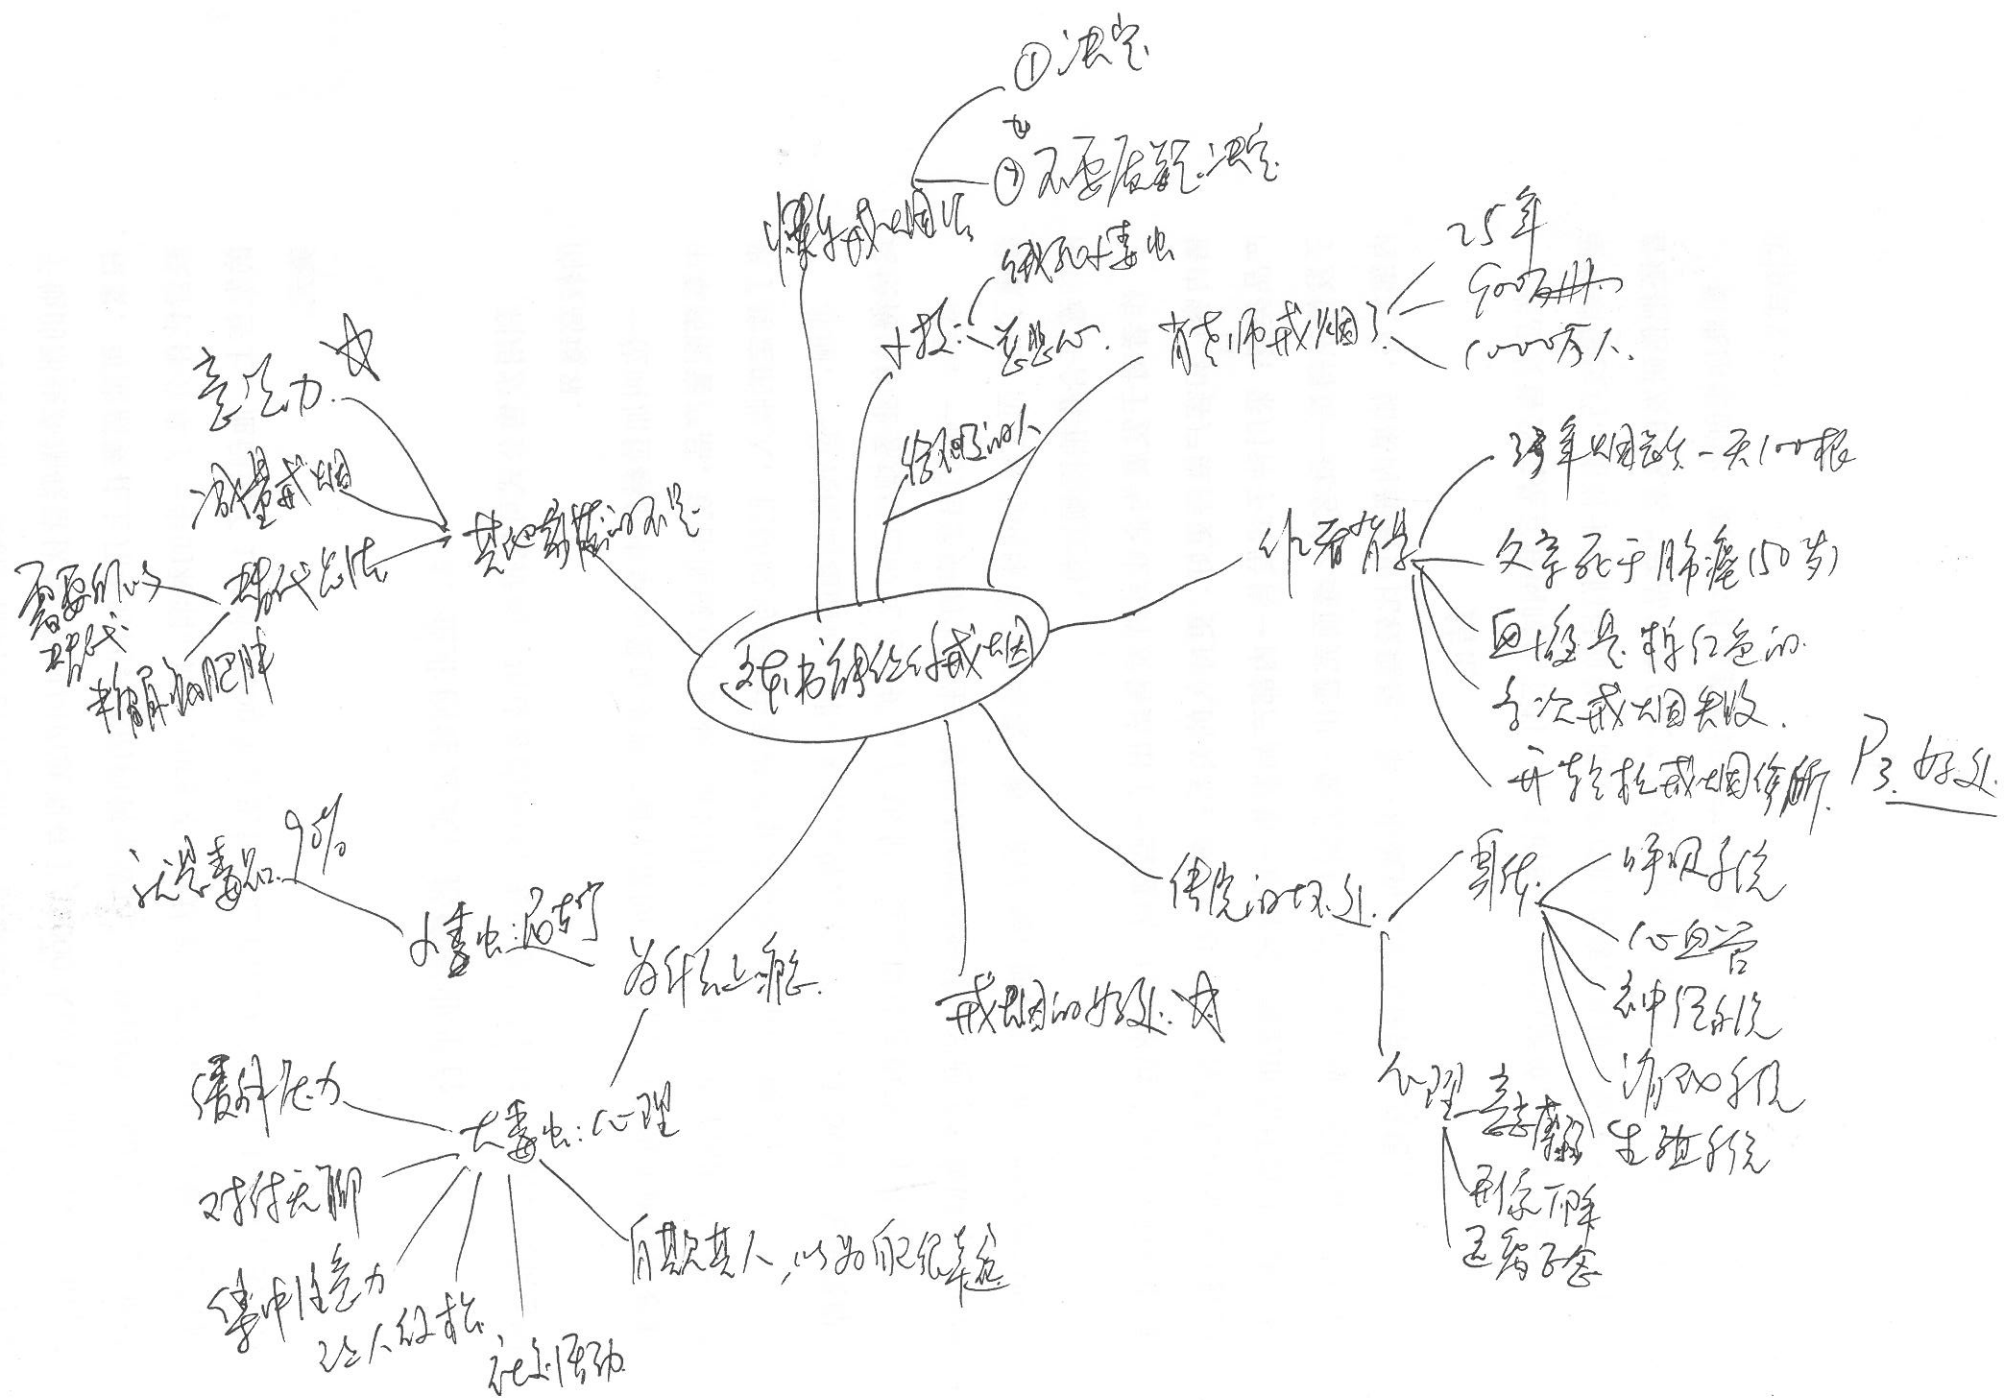 这本书能让你戒烟
轻松戒烟法
①决定
②不要质疑决定
小技:
饿死小毒虫
慈悲心.
给不想的人
肖老师戒烟了
25年
900万册
1000万人.
作者背景
33年烟龄一天100根
父亲死于肺癌(50岁)
血液是棕红色的.
多次戒烟失败.
开轻松戒烟诊所.
P3.好处.
传统的坏处.
身体.
呼吸系统
心血管
神经系统
消化系统
生殖系统
心理
意志摩擦
形象下降
遗留子宫
戒烟的好处.
为什么上瘾.
小毒虫:尼古丁
就是毒品.90%
大毒虫:心理
缓解压力
对付无聊
集中注意力
让人放松
社交活动
自欺欺人,以为自己很幸福
其他方法的不足
意志力.
减量戒烟
替代疗法
需要的以
替代
半有的肥胖